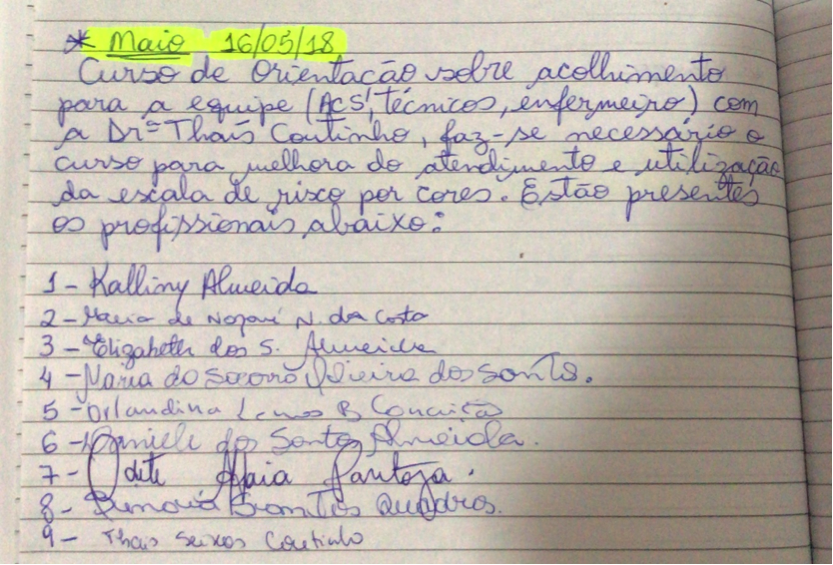 * Maio 16/05/18
Curso de Orientação sobre acolhimento
para a equipe (ACS', técnicos, enfermeiro) com
a Drª Thais Coutinho, faz-se necessário o
curso para melhora do atendimento e utilização
da escala de risco por cores. Estão presentes
os profissionais abaixo:
1 - Kalliny Almeida
2 - Maria de Nazaré N. da Costa
3 - Elizabeth dos S. Almeida
4 - Maria do Socorro Oliveira dos Santos.
5 - Orlandina Lemos B Conceição
6 - Daniele dos Santos Almeida.
7 - Odete Maia Pantoja.
8 - Quadros.
9 - Thais Seixas Coutinho